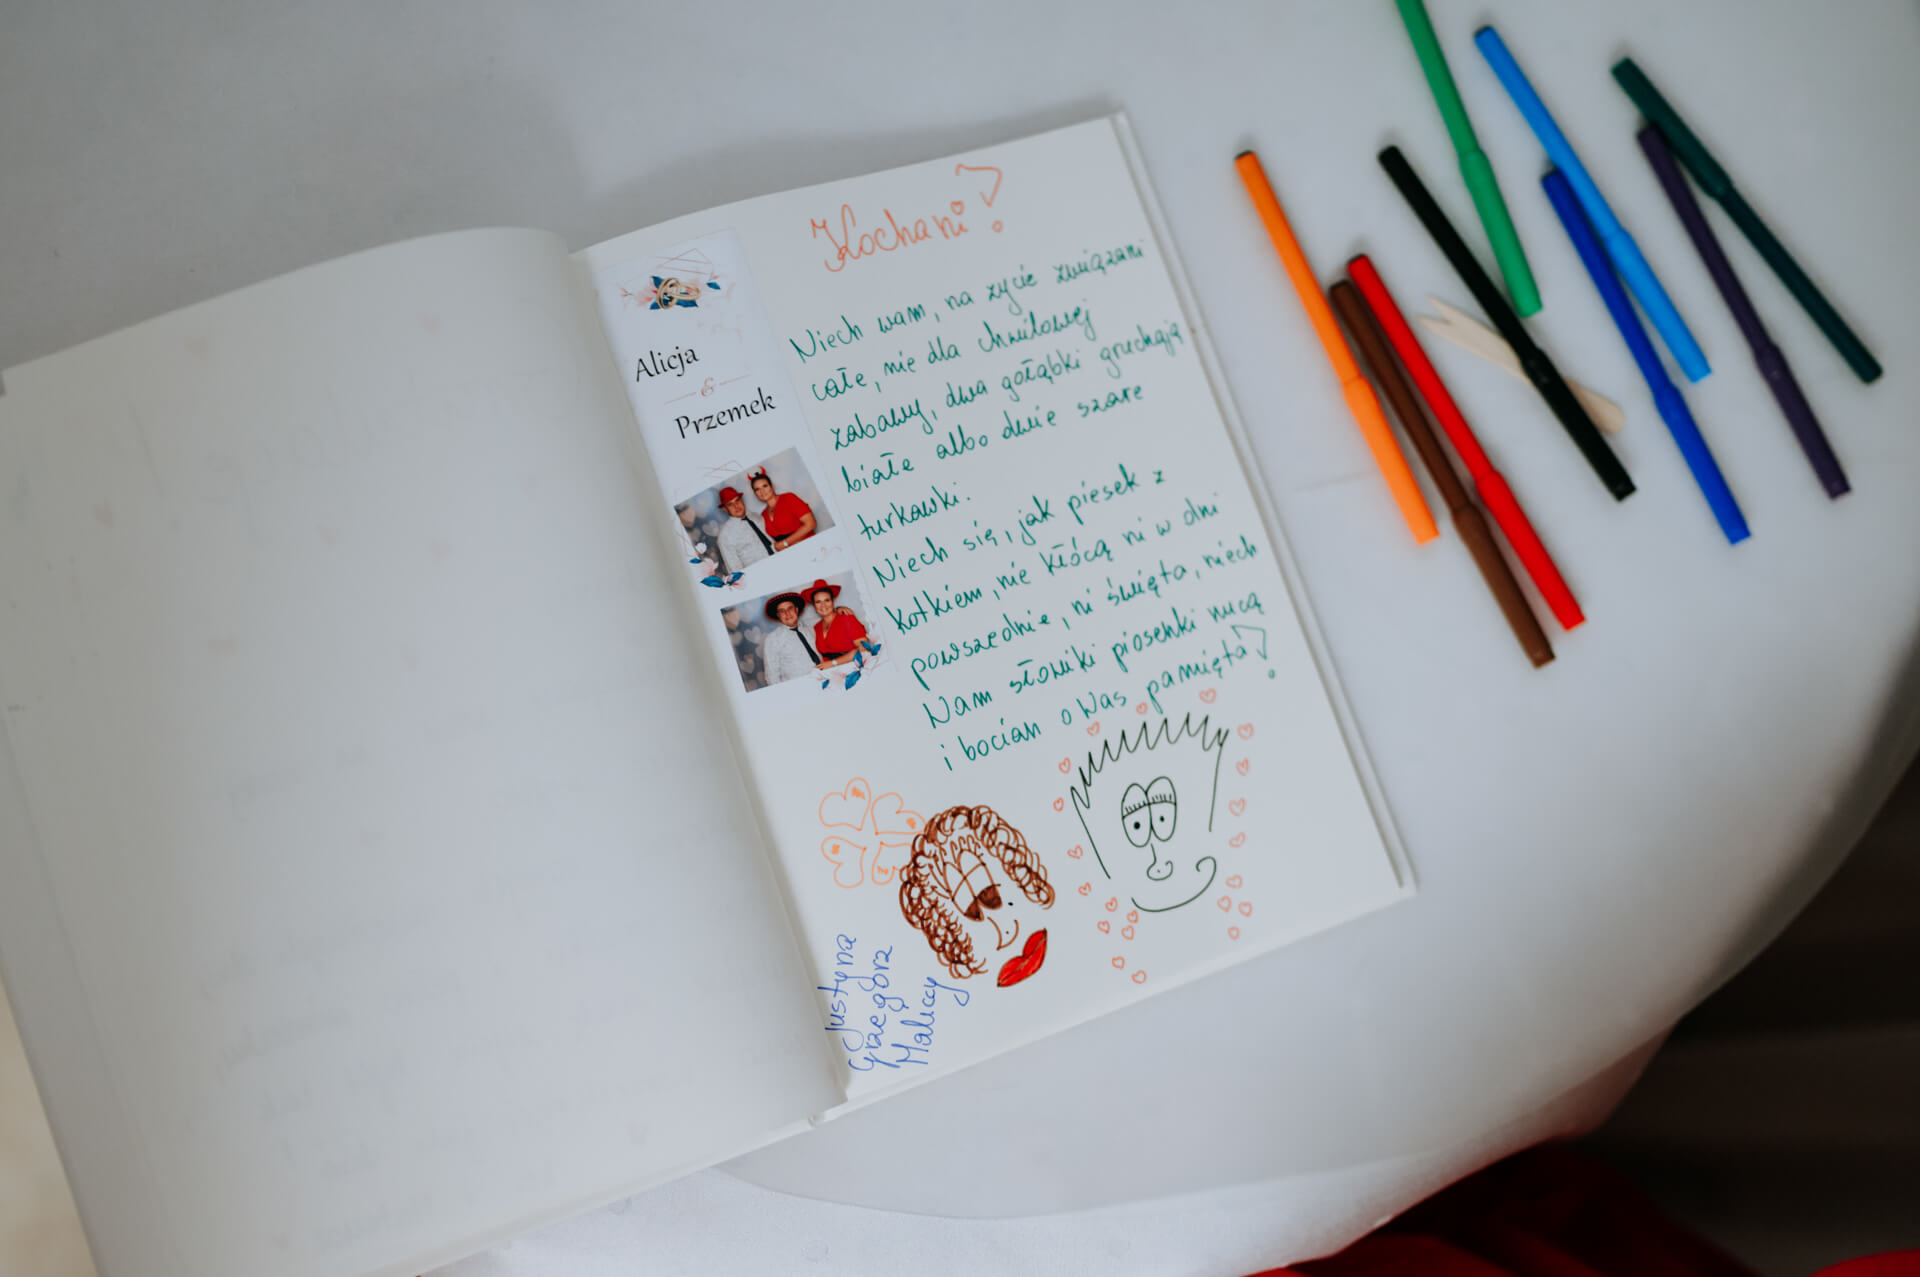 Alicja
&
Przemek
Kochani!
Niech wam, na życie związani
całe, nie dla chwilowej
zabawy, dwa gołąbki gruchają
białe albo dwie szare
turkawki.
Niech się, jak piesek z
kotkiem, nie kłócą ni w dni
powszednie, ni święta, niech
Wam słowiki piosenki nucą
i bocian o Was pamięta!
Justyna
Grzegorz
Maliccy